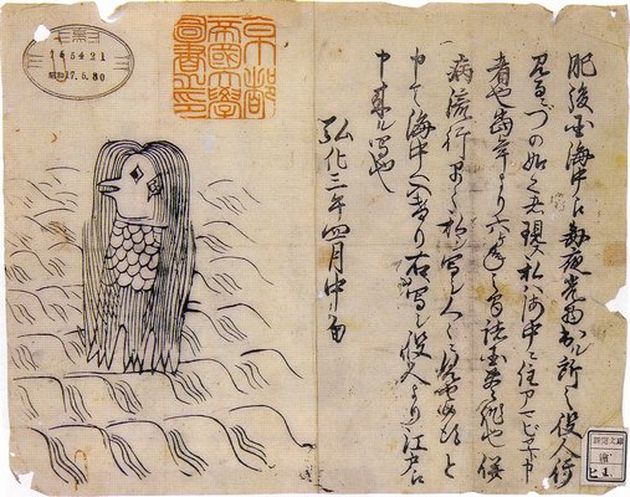 肥後国海中え毎夜光物出ル所之役人行
見るニづの如く者現ス私ハ海中ニ住アマビヱト申
者也当年より六ヶ年之間諸国豊作也併
病流行早々私ヲ写シ人々ニ見セ候得と
申て海中へ入けり右写シ役人より江戸え
申来ル写也
弘化三年四月中旬
京都
帝國大學
圖書之印
昭和17.5.30
新聞文庫
繪